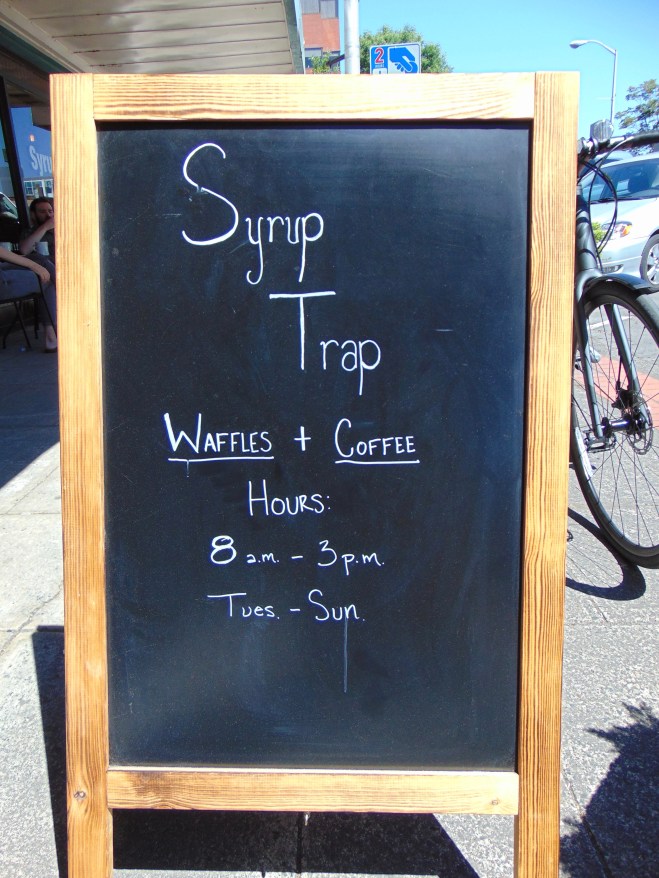 2
Syrup
Trap
WAFFLES + COFFEE
HOURS:
8 a.m. - 3 p.m.
Tues. - Sun.